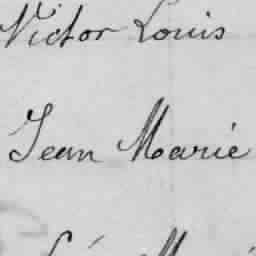 Victor Louis
Jean Marie